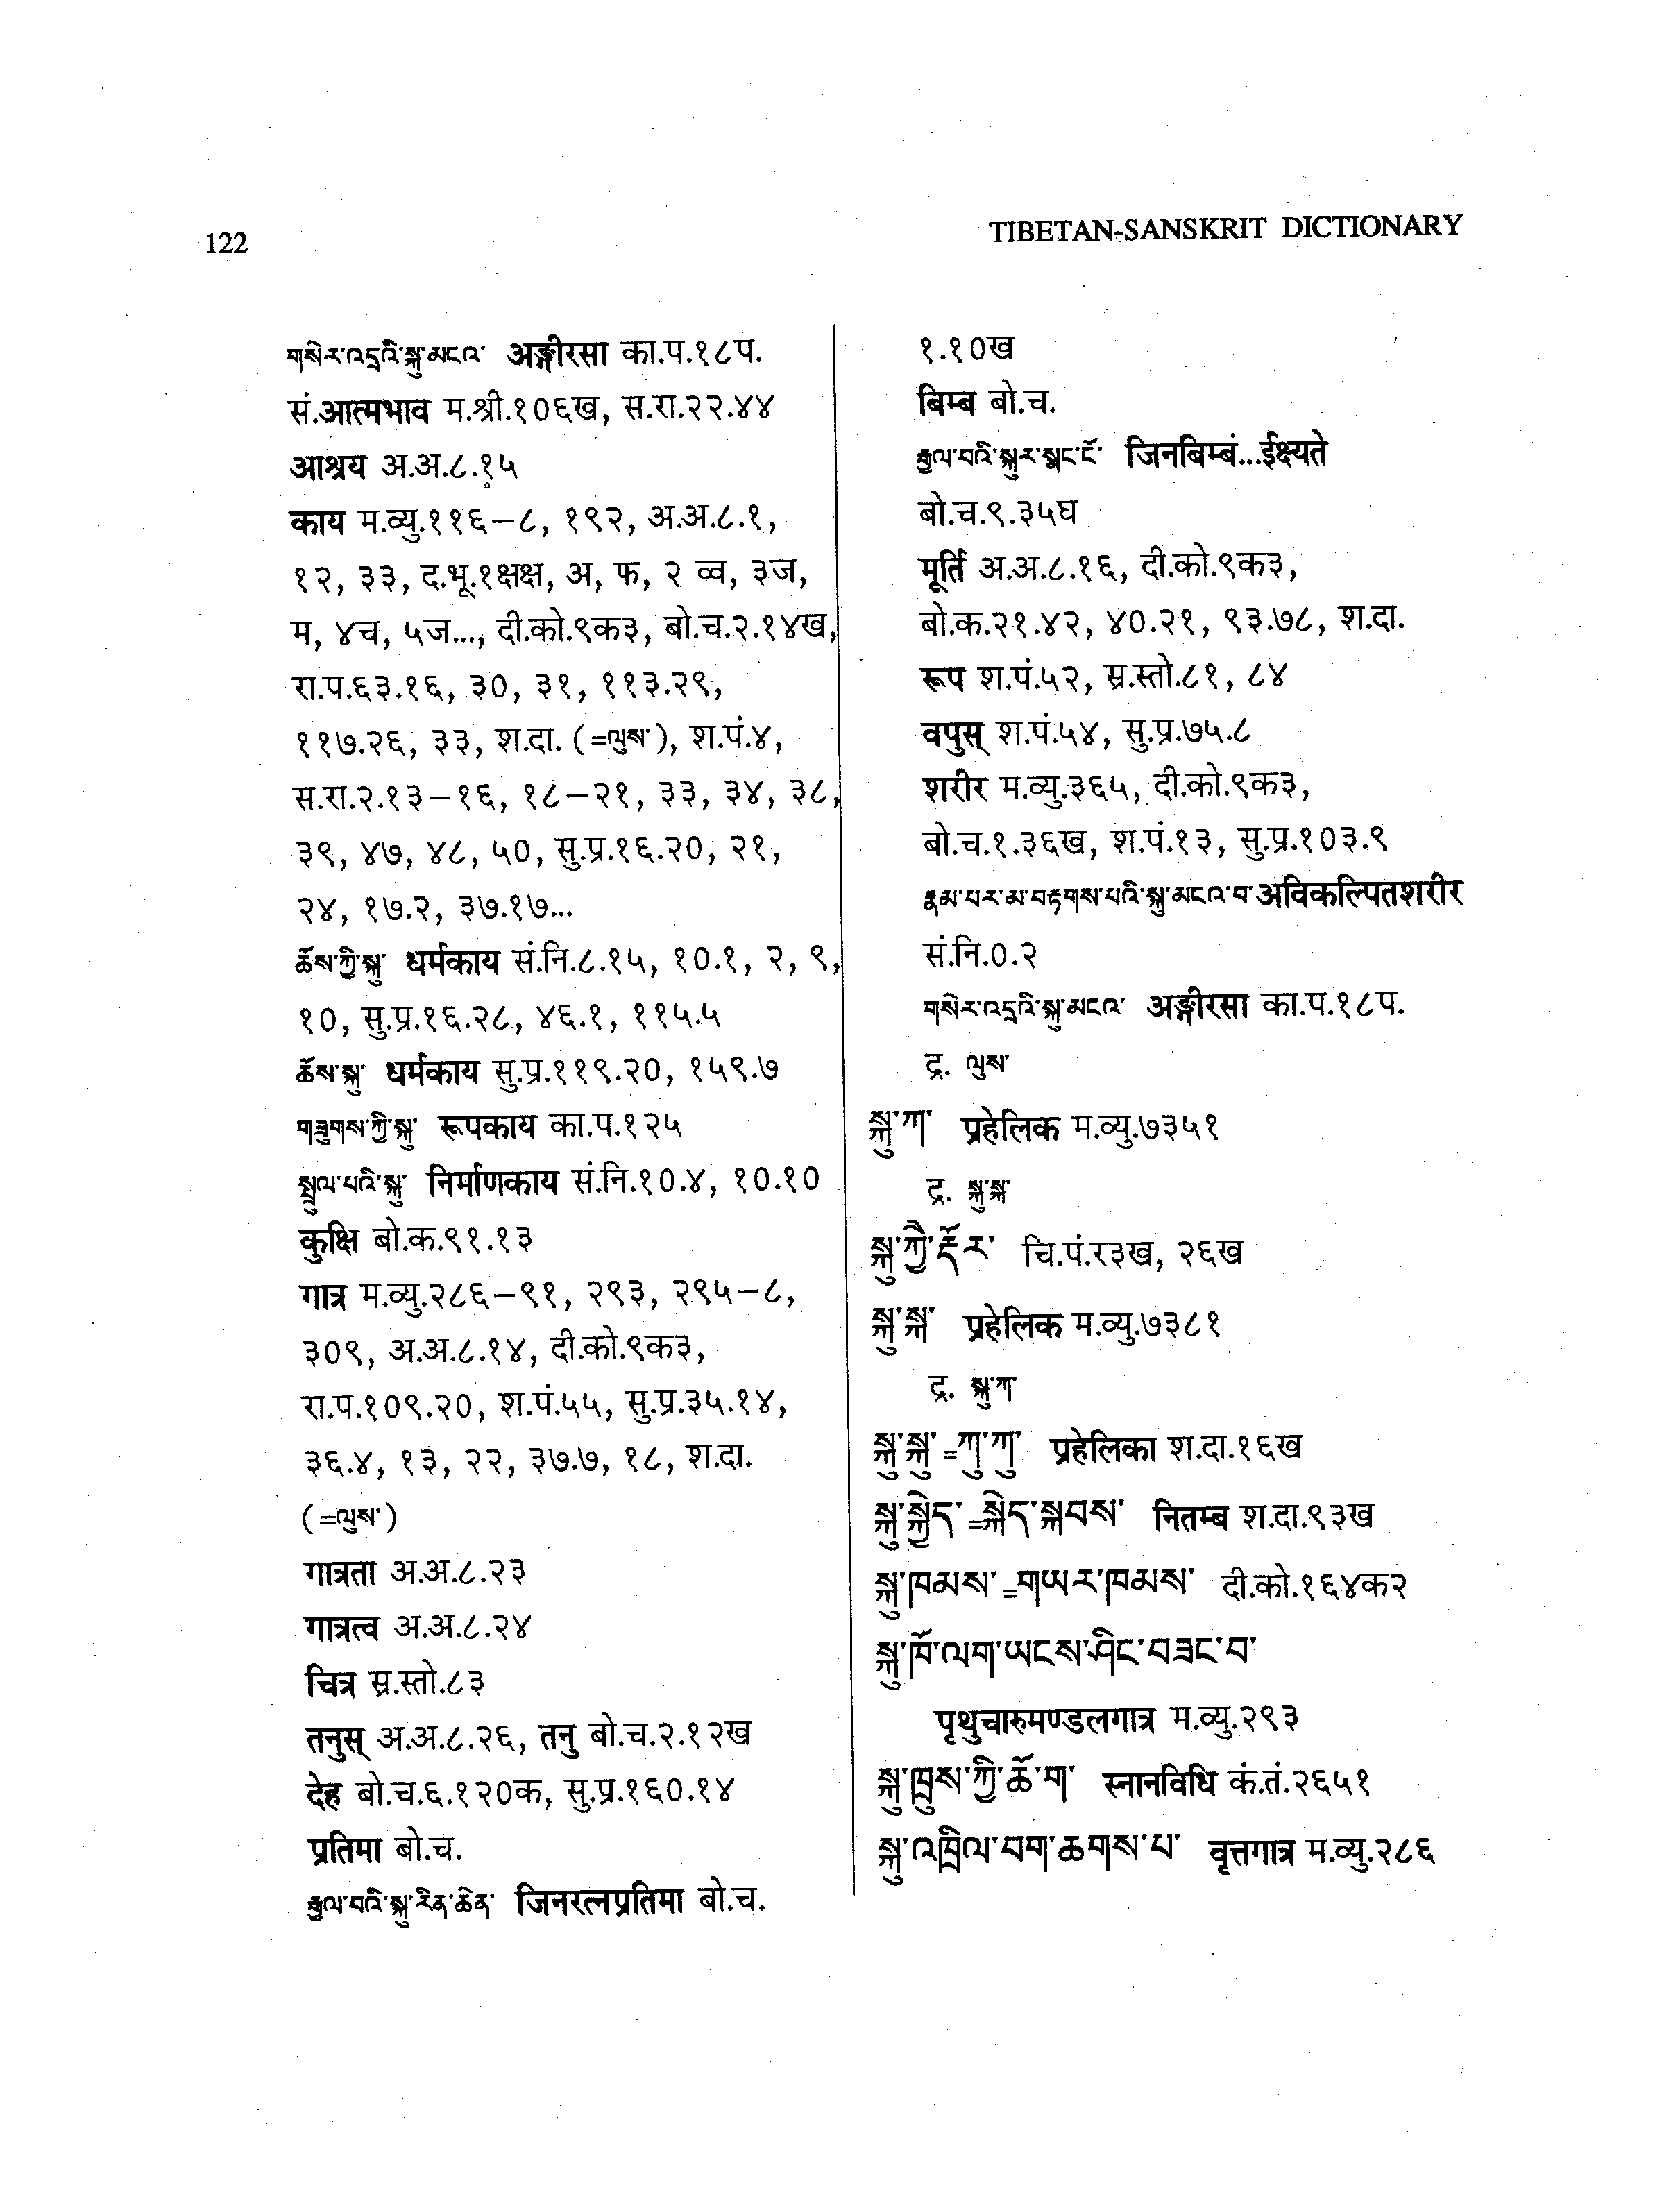 122
TIBETAN-SANSKRIT DICTIONARY
གསེར་འདྲའི་སྐུ་མངའ་ अङ्गीरसा का.प.१८प.
सं.आत्मभाव म.श्री.१०६ख, स.रा.२२.४४
आश्रय अ.अ.८.१५
काय म.व्यु.११६–८, १९२, अ.अ.८.१,
१२, ३३, द.भू.१क्षक्ष, अ, फ, २ व्व, ३ज,
म, ४च, ५ज..., दी.को.९क३, बो.च.२.१४ख,
रा.प.६३.१६, ३०, ३१, ११३.२९,
११७.२६, ३३, श.दा. (=ལུས་), श.पं.४,
स.रा.२.१३–१६, १८–२१, ३३, ३४, ३८,
३९, ४७, ४८, ५०, सु.प्र.१६.२०, २१,
२४, १७.२, ३७.१७...
ཆོས་ཀྱི་སྐུ་ धर्मकाय सं.नि.८.१५, १०.१, २, ९,
१०, सु.प्र.१६.२८, ४६.१, ११५.५
ཆོས་སྐུ་ धर्मकाय सु.प्र.११९.२०, १५९.७
གཟུགས་ཀྱི་སྐུ་ रूपकाय का.प.१२५
སྤྲུལ་པའི་སྐུ་ निर्माणकाय सं.नि.१०.४, १०.१०
कुक्षि बो.क.९१.१३
गात्र म.व्यु.२८६–९१, २९३, २९५–८,
३०९, अ.अ.८.१४, दी.को.९क३,
रा.प.१०९.२०, श.पं.५५, सु.प्र.३५.१४,
३६.४, १३, २२, ३७.७, १८, श.दा.
(=ལུས་)
गात्रता अ.अ.८.२३
गात्रत्व अ.अ.८.२४
चित्र स्र.स्तो.८३
तनुस् अ.अ.८.२६, तनु बो.च.२.१२ख
देह बो.च.६.१२०क, सु.प्र.१६०.१४
प्रतिमा बो.च.
རྒྱལ་བའི་སྐུ་རིན་ཆེན་ जिनरत्नप्रतिमा बो.च.
१.१०ख
बिम्ब बो.च.
རྒྱལ་བའི་སྐུར་སྣང་ངོ་ जिनबिम्बं...ईक्ष्यते
बो.च.९.३५घ
मूर्ति अ.अ.८.१६, दी.को.९क३,
बो.क.२१.४२, ४०.२१, ९३.७८, श.दा.
रूप श.पं.५२, स्र.स्तो.८१, ८४
वपुस् श.पं.५४, सु.प्र.७५.८
शरीर म.व्यु.३६५, दी.को.९क३,
बो.च.१.३६ख, श.पं.१३, सु.प्र.१०३.९
རྣམ་པར་མ་བརྟགས་པའི་སྐུ་མངའ་བ་ अविकल्पितशरीर
सं.नि.०.२
གསེར་འདྲའི་སྐུ་མངའ་ अङ्गीरसा का.प.१८प.
द्र. ལུས་
སྐུ་ཀ་ प्रहेलिक म.व्यु.७३५१
द्र. སྐུ་སྐ་
སྐུ་ཀྱཻ་རྡོར་ चि.पं.र३ख, २६ख
སྐུ་སྐ་ प्रहेलिक म.व्यु.७३८१
द्र. སྐུ་ཀ་
སྐུ་སྐུ་=ཀུ་ཀུ་ प्रहेलिका श.दा.१६ख
སྐུ་སྐྱེད་=སྐེད་སྐབས་ नितम्ब श.दा.९३ख
སྐུ་ཁམས་=གཡར་ཁམས་ दी.को.१६४क२
སྐུ་ཁོ་ལག་ཡངས་ཤིང་བཟང་བ་
पृथुचारुमण्डलगात्र म.व्यु.२९३
སྐུ་ཁྲུས་ཀྱི་ཆོ་ག་ स्नानविधि कं.तं.२६५१
སྐུ་འཁྲིལ་བག་ཆགས་པ་ वृत्तगात्र म.व्यु.२८६